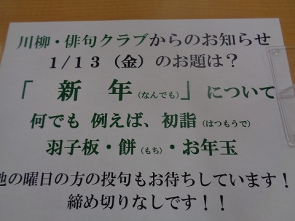 川柳・俳句クラブからのお知らせ
1/13（金）のお題は？
「 新 年（なんでも）」について
何でも 例えば、初詣（はつもうで）
羽子板・餅（もち）・お年玉
他の曜日の方の投句もお待ちしています！！
締め切りなしです！！